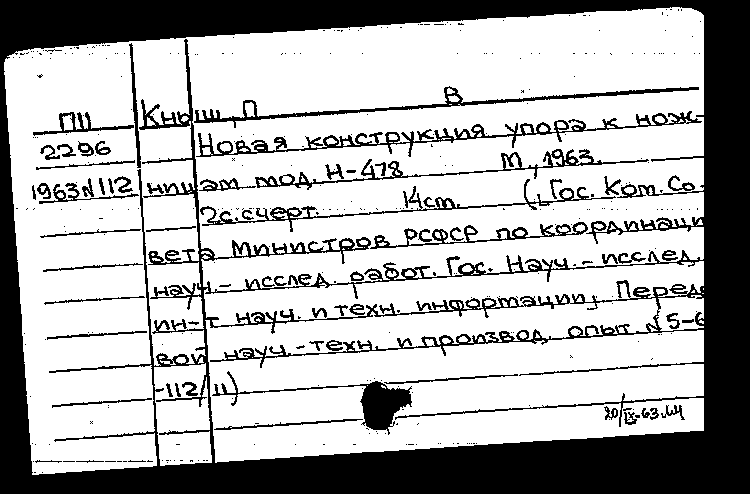 ПII Кныш, П В
2296 Новая конструкция упора к нож-
1963 N 112 ницам мод. Н-478 М, 1963.
2с.счерт. 14cm. ([Гос. Ком. Со-
вета Министров РСФСР по координаци
науч.- исслед. работ. Гос. Науч.- исслед.
ин-т науч. и техн. информации]. Передо
вой науч.-техн. и производ. опыт. N 5-6
-112/11)
20/IX-63.